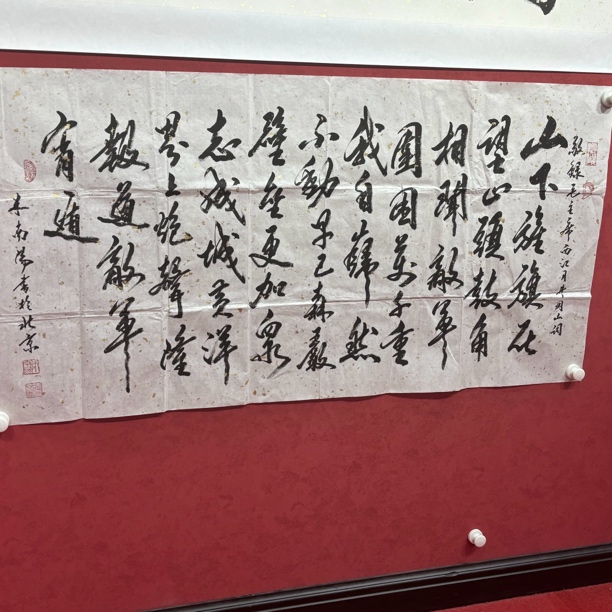 敬錄毛主席西江月井岡山詞
山下旌旗在
望山頭鼓角
相聞敵軍
圍困萬千重
我自巋然
不動早已森嚴
壁壘更加衆
志成城黄洋
界上炮聲隆
報道敵軍
宵遁
書於北京